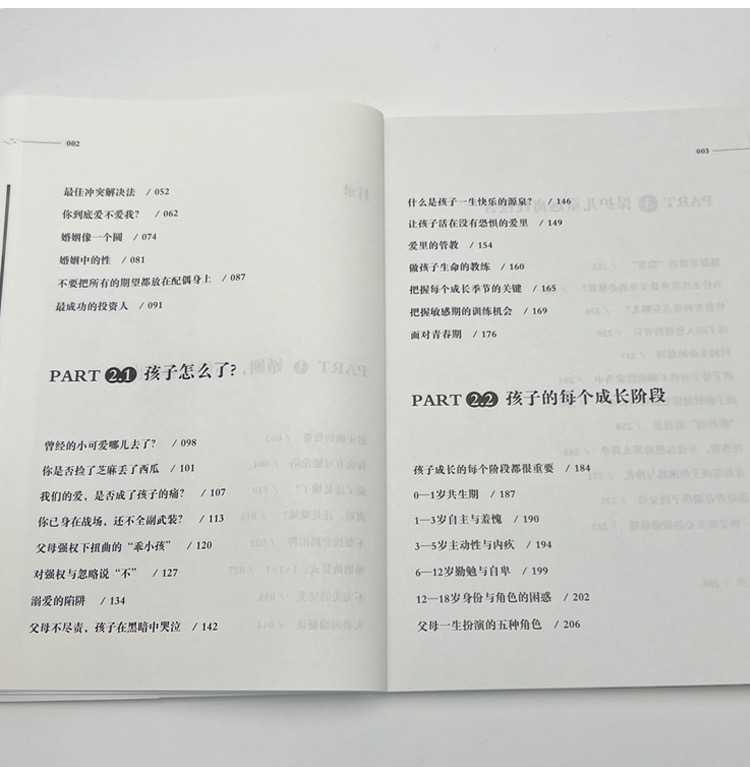 002
最佳冲突解决法 / 052
你到底爱不爱我？ / 062
婚姻像一个圆 / 074
婚姻中的性 / 081
不要把所有的期望都放在配偶身上 / 087
最成功的投资人 / 091
PART 2.1 孩子怎么了?
曾经的小可爱哪儿去了？ / 098
你是否捡了芝麻丢了西瓜 / 101
我们的爱，是否成了孩子的痛？ / 107
你已身在战场，还不全副武装？ / 113
父母强权下扭曲的“乖小孩” / 120
对强权与忽略说“不” / 127
溺爱的陷阱 / 134
父母不尽责，孩子在黑暗中哭泣 / 142
003
什么是孩子一生快乐的源泉？ / 146
让孩子活在没有恐惧的爱里 / 149
爱里的管教 / 154
做孩子生命的教练 / 160
把握每个成长季节的关键 / 165
把握敏感期的训练机会 / 169
面对青春期 / 176
PART 2.2 孩子的每个成长阶段
孩子成长的每个阶段都很重要 / 184
0—1岁共生期 / 187
1—3岁自主与羞愧 / 190
3—5岁主动性与内疚 / 194
6—12岁勤勉与自卑 / 199
12—18岁身份与角色的困惑 / 202
父母一生扮演的五种角色 / 206